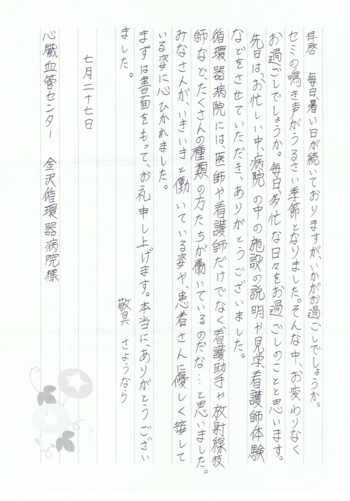 拝啓　毎日暑い日が続いておりますが、いかがお過ごしでしょうか。
セミの鳴き声がうるさい季節となりました。そんな中、お変わりなく
お過ごしでしょうか。毎日、多忙な日々をお過ごしのことと思います。
先日は、お忙しい中、病院の中の施設の説明や見学、看護師体験
などをさせていただき、ありがとうございました。
循環器病院には、医師や看護師だけでなく、看護助手や放射線技
師など、たくさんの種類の方たちが働いているのだな…と思いました。
みなさんが、いきいきと働いている姿や、患者さんに優しく接して
いる姿に心ひかれました。
まずは書面をもって、お礼申し上げます。本当に、ありがとうござい
ました。
敬具　さようなら
七月二十七日
心臓血管センター　金沢循環器病院様